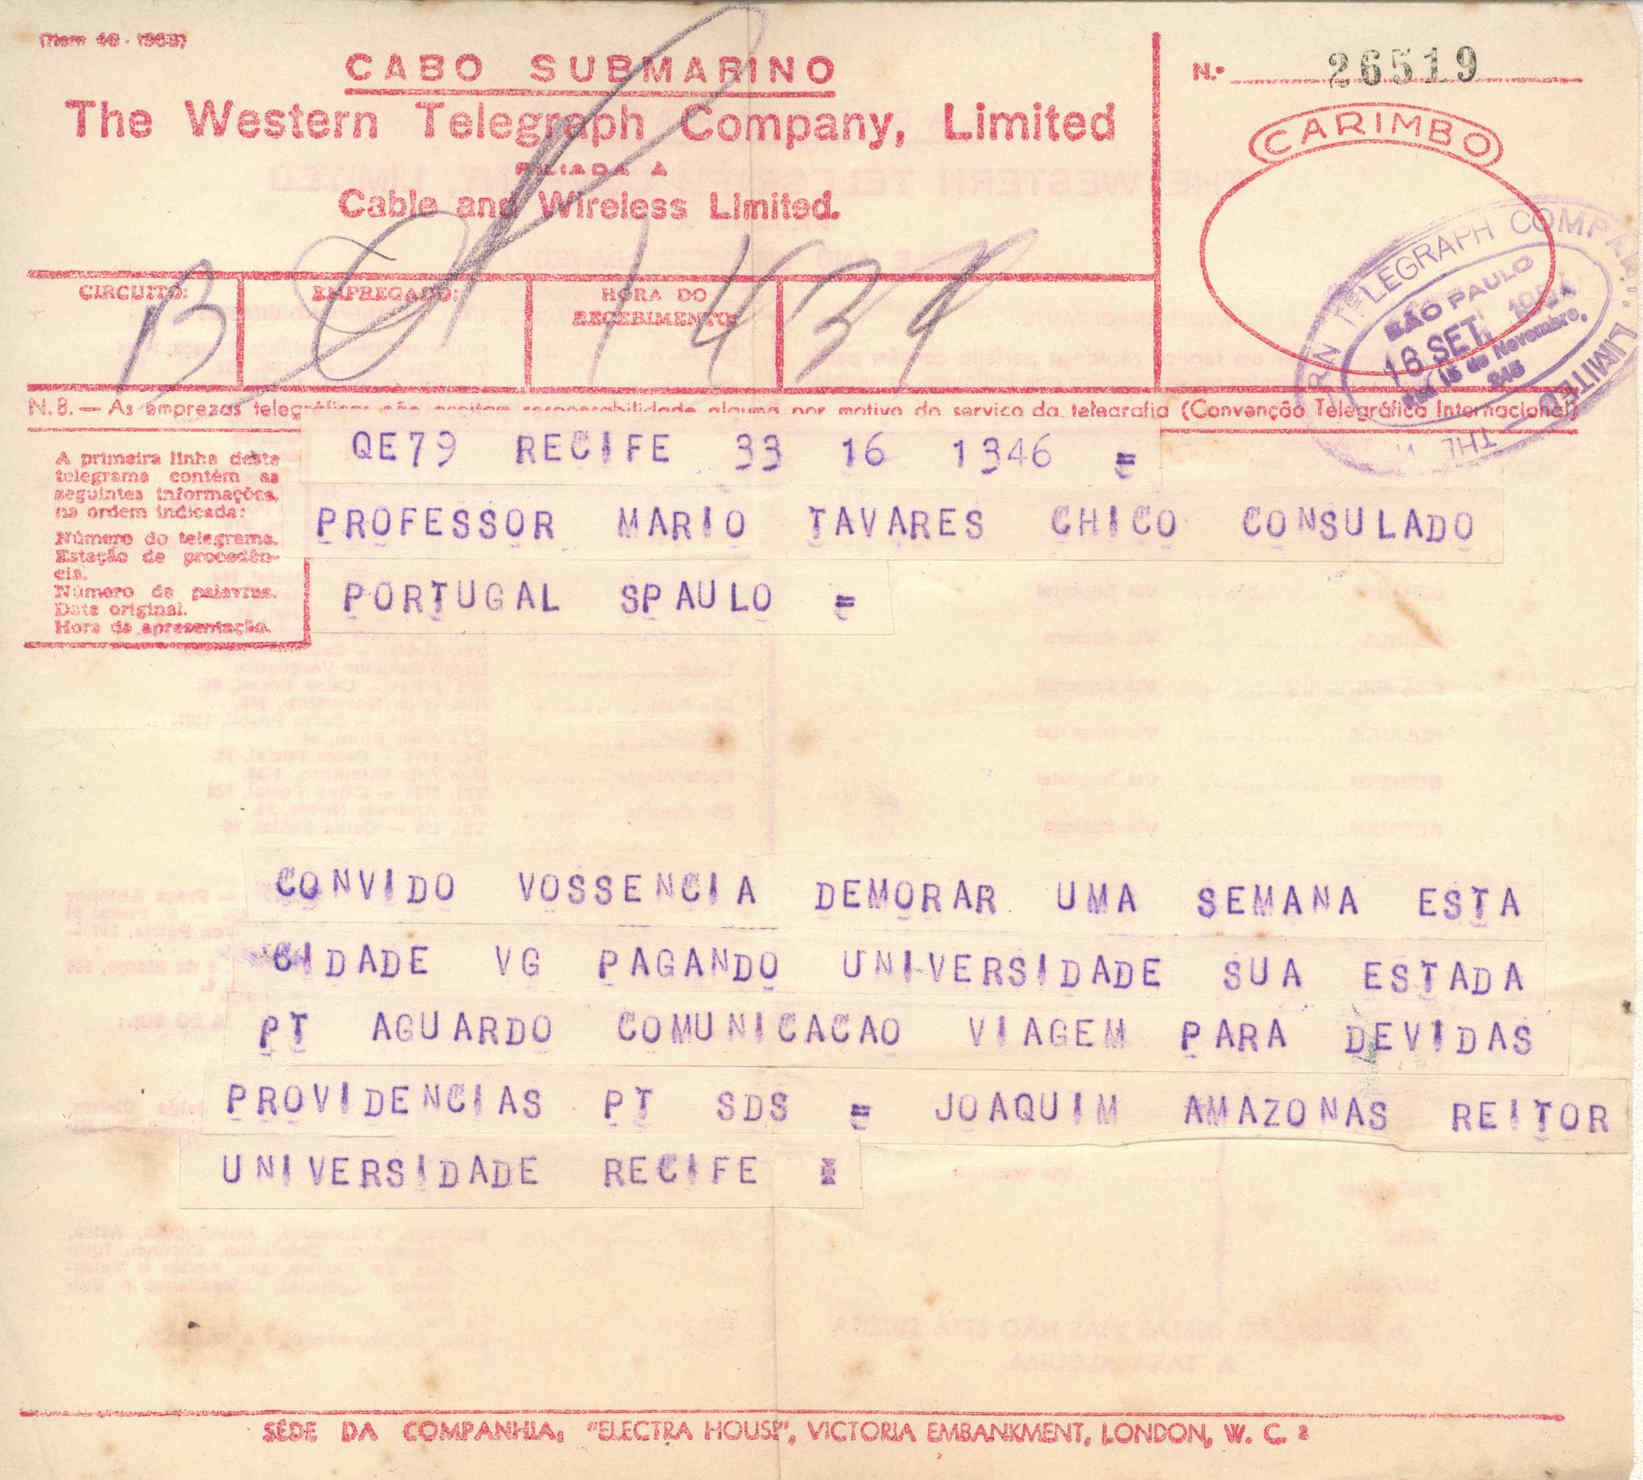 CABO SUBMARINO
The Western Telegraph Company, Limited
FILIADA À
Cable and Wireless Limited.
N.º 26519
CARIMBO
CIRCUITO:
EMPREGADO:
HORA DO
RECEBIMENTO
B 1439
TELEGRAPH COMPANY, LIMITED
SÃO PAULO
16 SET.
15 de Novembro,
THE
N.B. — As emprezas telegráficas não aceitam responsabilidade alguma por motivo do serviço da telegrafia (Convenção Telegráfica Internacional)
A primeira linha deste
telegrama contém as
seguintes informações,
na ordem indicada:
Número do telegrama.
Estação de procedên-
cia.
Número de palavras.
Data original.
Hora da apresentação.
QE79 RECIFE 33 16 1346 =
PROFESSOR MARIO TAVARES CHICO CONSULADO
PORTUGAL SPAULO =
CONVIDO VOSSENCIA DEMORAR UMA SEMANA ESTA
CIDADE VG PAGANDO UNIVERSIDADE SUA ESTADA
PT AGUARDO COMUNICACAO VIAGEM PARA DEVIDAS
PROVIDENCIAS PT SDS = JOAQUIM AMAZONAS REITOR
UNIVERSIDADE RECIFE
SÉDE DA COMPANHIA: "ELECTRA HOUSE", VICTORIA EMBANKMENT, LONDON, W. C. 2